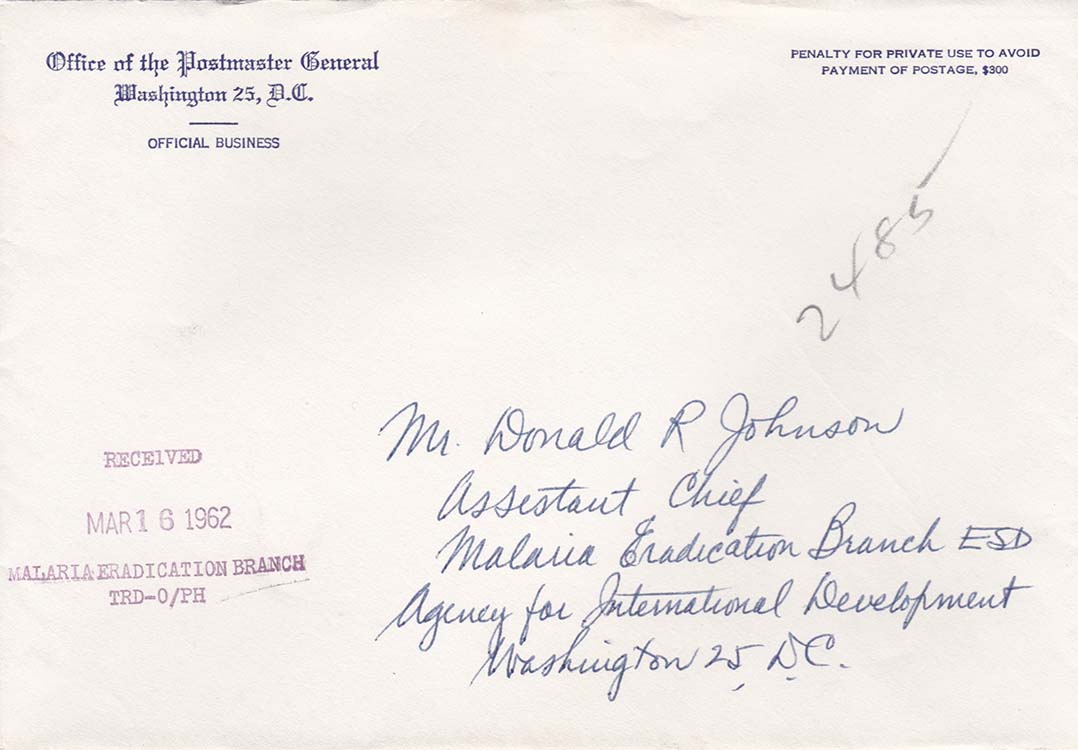 Office of the Postmaster General
Washington 25, D.C.
OFFICIAL BUSINESS
PENALTY FOR PRIVATE USE TO AVOID
PAYMENT OF POSTAGE, $300
2485
Mr. Donald R Johnson
Assistant Chief
Malaria Eradication Branch ESD
Agency for International Development
Washington 25, D.C.
RECEIVED
MAR 16 1962
MALARIA ERADICATION BRANCH
TRD-O/PH